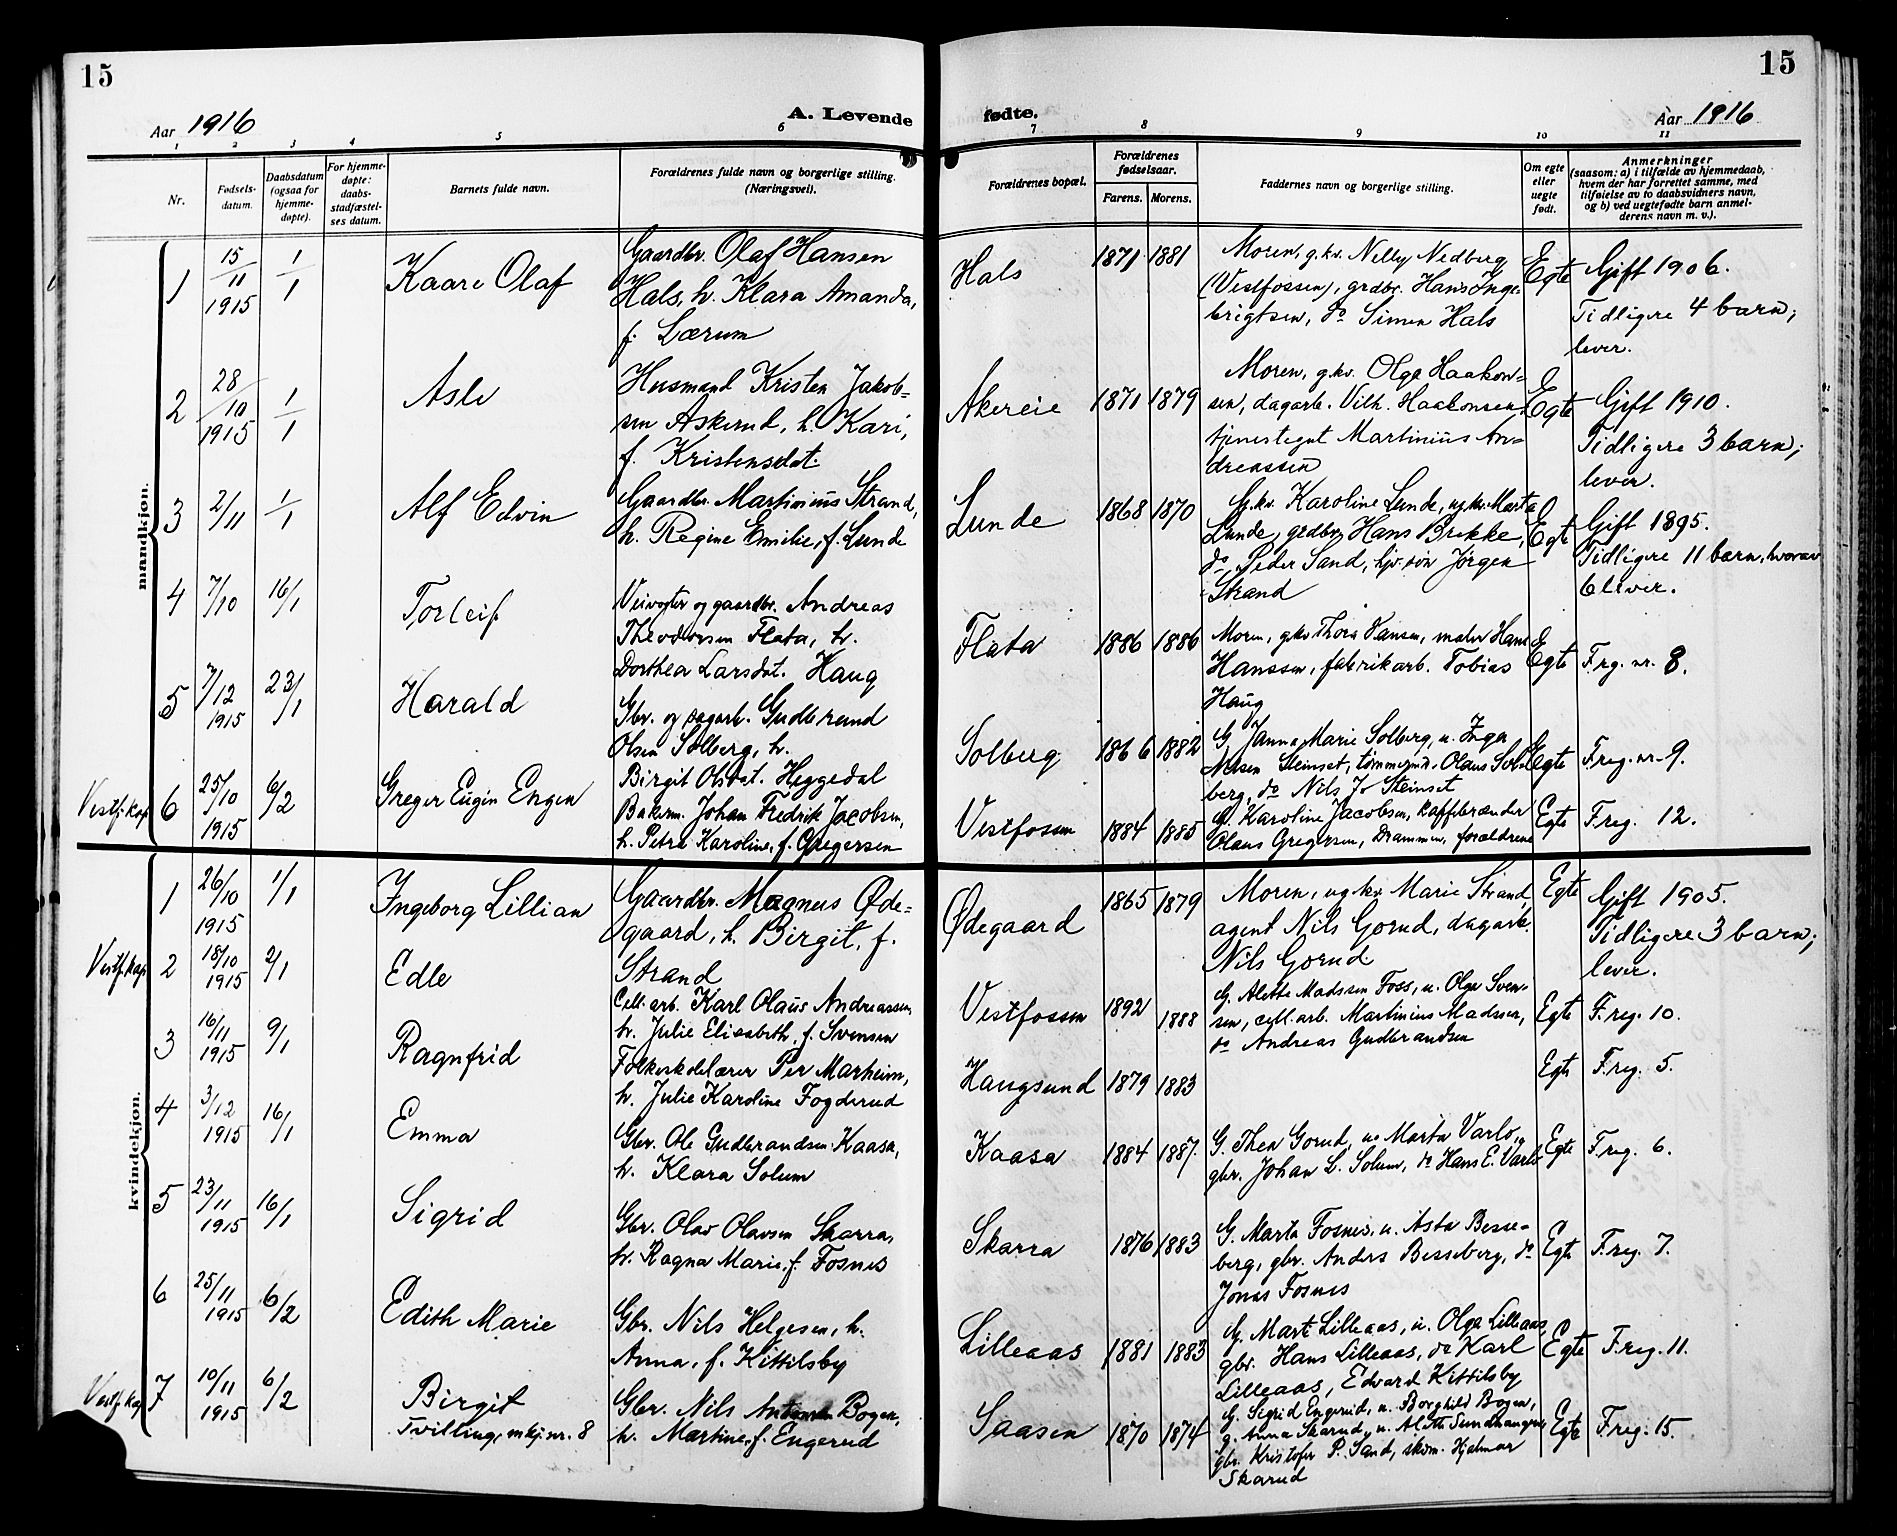 15
15
Aar 1916
A. Levende
fødte.
Aar 1916
1 2 3 4 5 6 7 8 9 10 11
Nr.
Fødsels-
datum.
Daabsdatum
(ogsaa for
hjemme-
døpte).
For hjemme-
døpte:
daabs-
stadfæstel-
ses datum.
Barnets fulde navn.
Forældrenes fulde navn og borgerlige stilling.
(Næringsvei).
Forældrenes bopæl.
Forældrenes
fødselsaar.
Farens. Morens.
Faddernes navn og borgerlige stilling.
Om egte
eller
uegte
født.
Anmerkninger
(saasom: a) i tilfælde av hjemmedaab,
hvem der har forrettet samme, med
tilføielse av to daabsvidners navn,
og b) ved uegtefødte barn anmel-
derens navn m. v.).
mandkjøn.
1
15/11
1915
1/1
Kaare Olaf
Gaardbr. Olaf Hansen
Hals, h. Klara Amanda,
f. Lærum
Hals
1871 1881
Moren, g.kv. Nelly Nedberg
(Vestfossen), grdbr. Hans Inge-
brigtsen, do Simen Hals
Egte
Gift 1906.
Tidligere 4 barn;
lever.
2
28/10
1915
1/1
Asle
Husmand Kristen Jakob-
sen Askerud, h. Kari,
f. Kristensdat.
Akereie
1871 1879
Moren, gkv. Olga Haakon-
sen, dagarb. Vilh. Haakonsen,
tjenestegut Martinius An-
dreassen
Egte
Gift 1910.
Tidligere 3 barn;
lever.
3
2/11
1/1
Alf Edvin
Gaardbr. Martinius Strand,
h. Regine Emilie, f. Lunde
Lunde
1868 1870
G.kv. Karoline Lunde, ugkv. Marta
Lunde, grdbr. Hans Brekke,
do Peder Sand, hjv. søn Jørgen
Strand
Egte
Gift 1895.
Tidligere 11 barn, hvorav
6 lever.
4
7/10
16/1
Torleif
Veivogter og gaardbr. Andreas
Theodorsen Flata, h.
Dorthea Larsdat. Haug
Flata
1886 1886
Moren, gkv Thora Hansen, maler Hans
Hanssen, fabrikarb. Tobias
Haug
Egte
F.reg. nr. 8.
5
7/12
1915
23/1
Harald
Gbr. og sagarb. Gudbrand
Olsen Solberg, h.
Birgit Olsdat. Heggedal
Solberg
1866 1882
G. Janna Marie Solberg, u. Inga
Steinset, tømmermd. Olaus Sol-
berg, do Nils J. Steinset
Egte
F.reg. nr. 9.
Vestf. kap.
6
25/10
1915
6/2
Greger Eugin Engen
Bakerm. Johan Fredrik Jacobsen,
h. Petra Karoline, f. Gregersen
Vestfossen
1884 1885
G. Karoline Jacobsen, kaffebrænder
Olaus Gregersen, Drammen, forældrene
Egte
F.reg. 12.
kvindekjøn.
1
26/10
1915
1/1
Ingeborg Lillian
Gaardbr. Magnus Øde-
gaard, h. Birgit, f.
Strand
Ødegaard
1865 1879
Moren, ugkv. Marie Strand,
agent Nils Gorud, dagarb.
Nils Gorud
Egte
Gift 1905.
Tidligere 3 barn;
lever.
Vestf. kap.
2
18/10
1915
2/1
Edle
Cell. arb. Karl Olaus Andreassen,
h. Julie Elisabeth, f. Svensen
Vestfossen
1892 1888
G. Alette Madssen Foss, u. Olga Sven-
sen, cell. arb. Martinius Madssen,
do Andreas Gudbrandsen
Egte
F.reg. 10.
3
16/11
1915
9/1
Ragnfrid
Folkeskolelærer Per Marheim,
h. Julie Karoline Fogderud
Haugsund
1879 1883
Egte
F.reg. 5.
4
3/12
1915
16/1
Emma
Gbr. Ole Gudbrandsen Kaasa,
h. Klara Solum
Kaasa
1884 1887.
G. Thea Gorud, u. Marta Varlo,
gbr. Johan L. Solum, do Hans E. Varlo
Egte
F.reg. 6.
5
23/11
1915
16/1
Sigrid
Gbr. Olav Olavsen Skarra,
h. Ragna Marie, f. Fosnes
Skarra
1876 1883
G. Marta Fosnes, u. Asta Besse-
berg, gbr. Anders Besseberg, do
Jonas Fosnes
Egte
F.reg. 7.
6
25/11
1915
6/2
Edith Marie
Gbr. Nils Helgesen, h.
Anna, f. Kittilsby
Lilleaas
1881 1883
G. Marte Lilleaas, u. Olga Lilleaas,
gbr. Hans Lilleaas, do Karl
Lilleaas, Edvard Kittilsby
Egte
F.reg. 11.
Vestf. kap
7
10/11
1915
6/2
Birgit
Tvilling, mkj. nr. 8
Gbr. Nils Antonsen Bogen,
h. Martine, f. Engerud
Saasen
1870 1874
G. Sigrid Engerud, u. Borghild Bogen,
g. Anna Skarud, u. Alette Sundhaugen,
gbr. Kristofer P. Sand, skom. Hjalmar
Skarud
Egte
F.reg. 15.